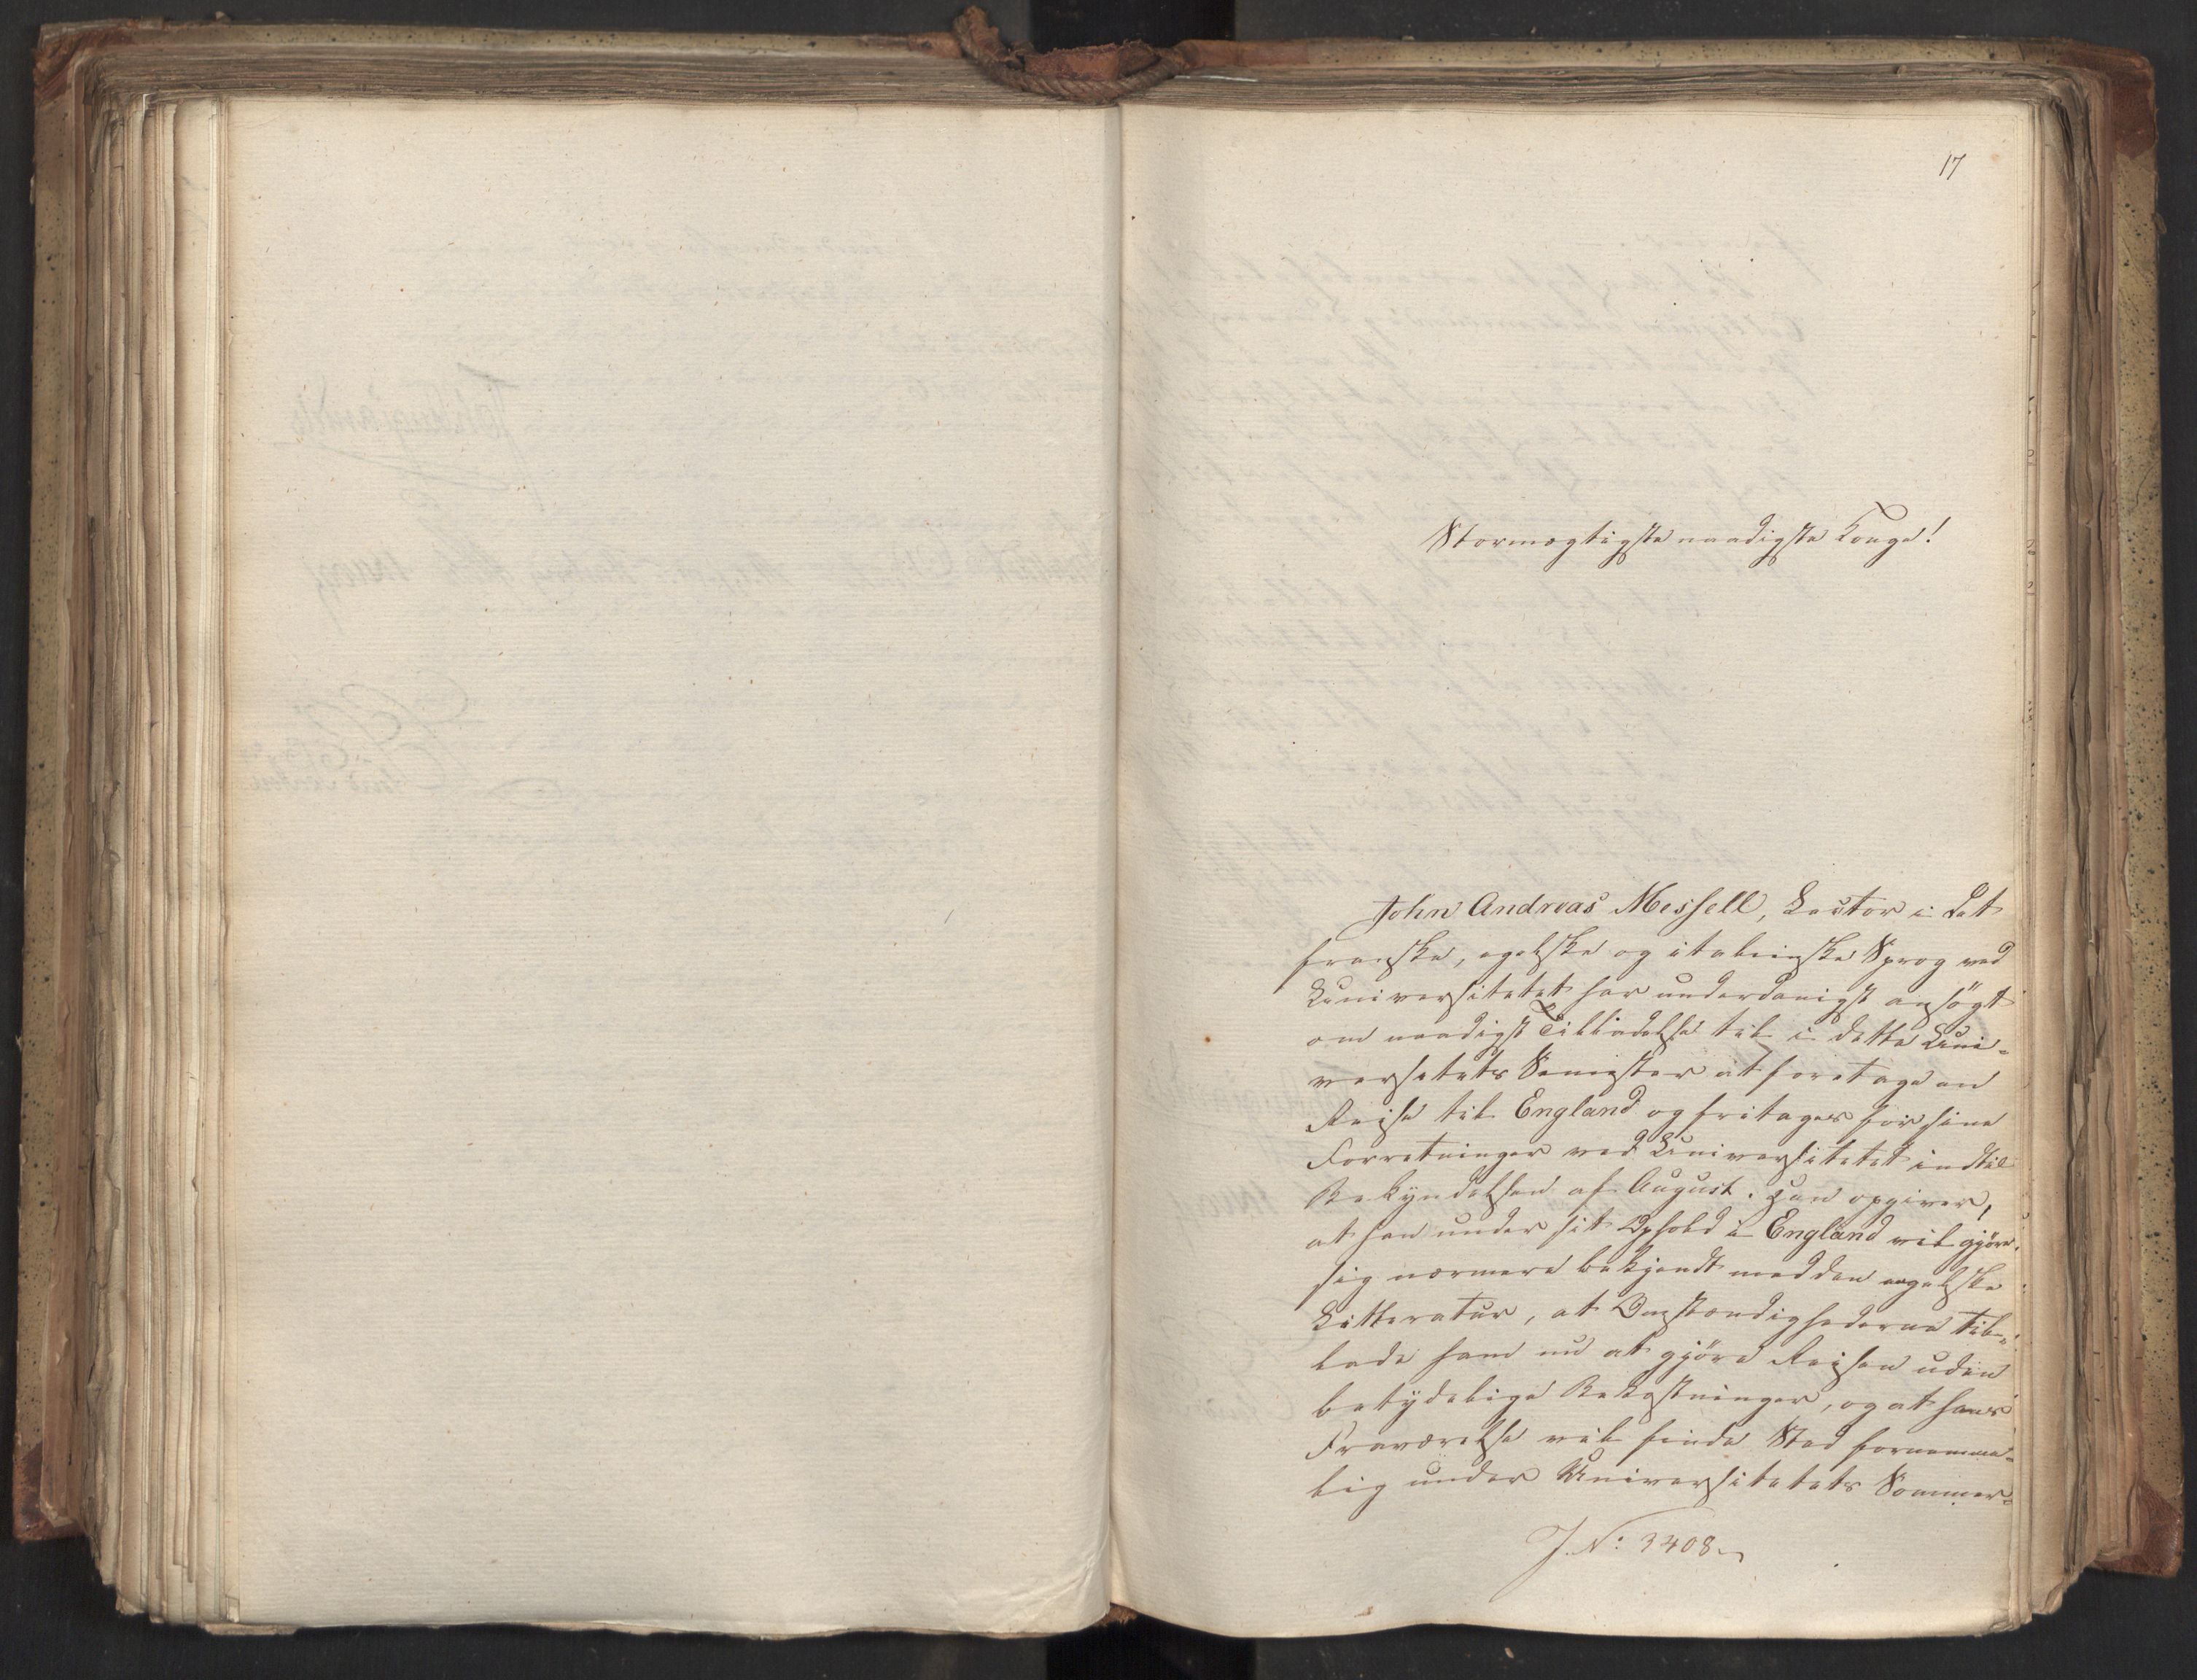 17
Stormægtigste naadigste Konge!
John Andreas Messell, Lector i det
franske, egelske og italienske Sprog ved
Universitetet har underdanigst ansögt
om naadigst Tilladelse til i dette Uni-
versitets Semester at foretage en
Reise til England og fritages for sine
Forretninger ved Universitetet indtil
Bekyndelsen af August. Han opgiver,
at han under sit Ophold i England vil gjöre
sig nærmere bekjendt med den engelske
Litteratur, at Omstændighederne til-
lade ham nu at gjöre Reisen uden
betydelige Bekostninger, og at hans
Fraværelse vil finde Sted fornemme-
lig under Universitetets Sommer-
J. N: 3408